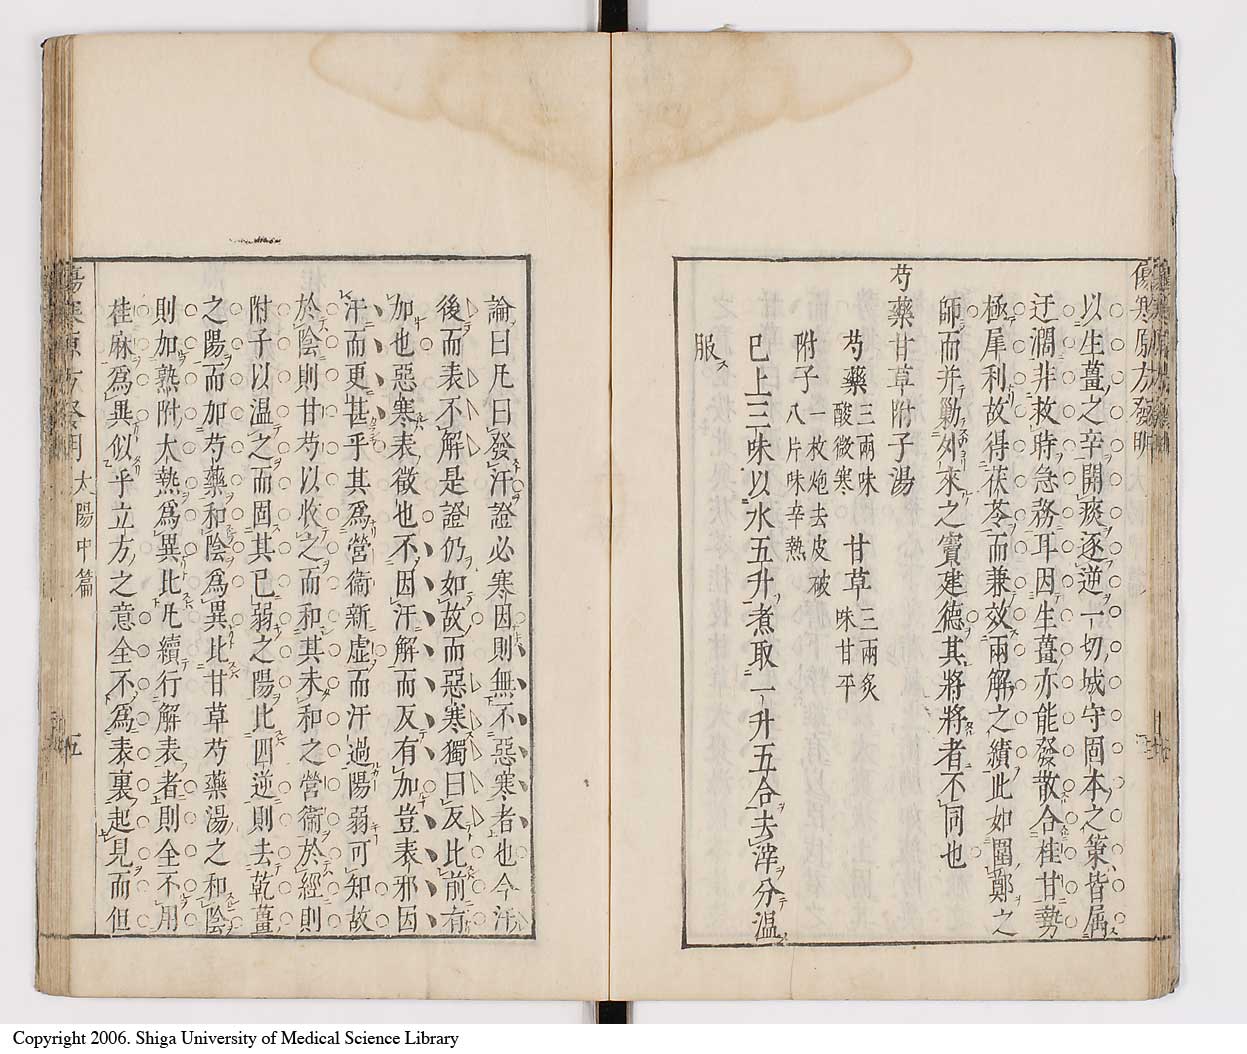 以生薑之辛開痰逐逆一切城守固本之策皆属
迂濶非救時急務耳因生薑亦能發散合桂甘勢
極犀利故得茯苓而兼效兩解之績此如圍鄭之
師而并勦外來之竇建德其將將者不同也
芍藥甘草附子湯
芍藥三兩味酸微寒 甘草三兩炙味甘平
附子一枚炮去皮破八片味辛熱
已上三味以水五升煮取一升五合去滓分温
服
論曰凡曰發汗證必寒因則無不惡寒者也今汗
後而表不解是證仍如故而惡寒獨曰反此前有
加也惡寒表徵也不因汗解而反有加豈表邪因
汗而更甚乎其爲營衞新虚而汗過陽弱可知故
於陰則甘芍以收之而和其未和之營衞於經則
附子以温之而固其已弱之陽此四逆則去乾薑
之陽而加芍藥和陰爲異此甘草芍藥湯之和陰
則加熟附大熱爲異比凡續行解表者則全不用
桂麻爲異似乎立方之意全不爲表裏起見而但
太陽中篇
五
Copyright 2006. Shiga University of Medical Science Library